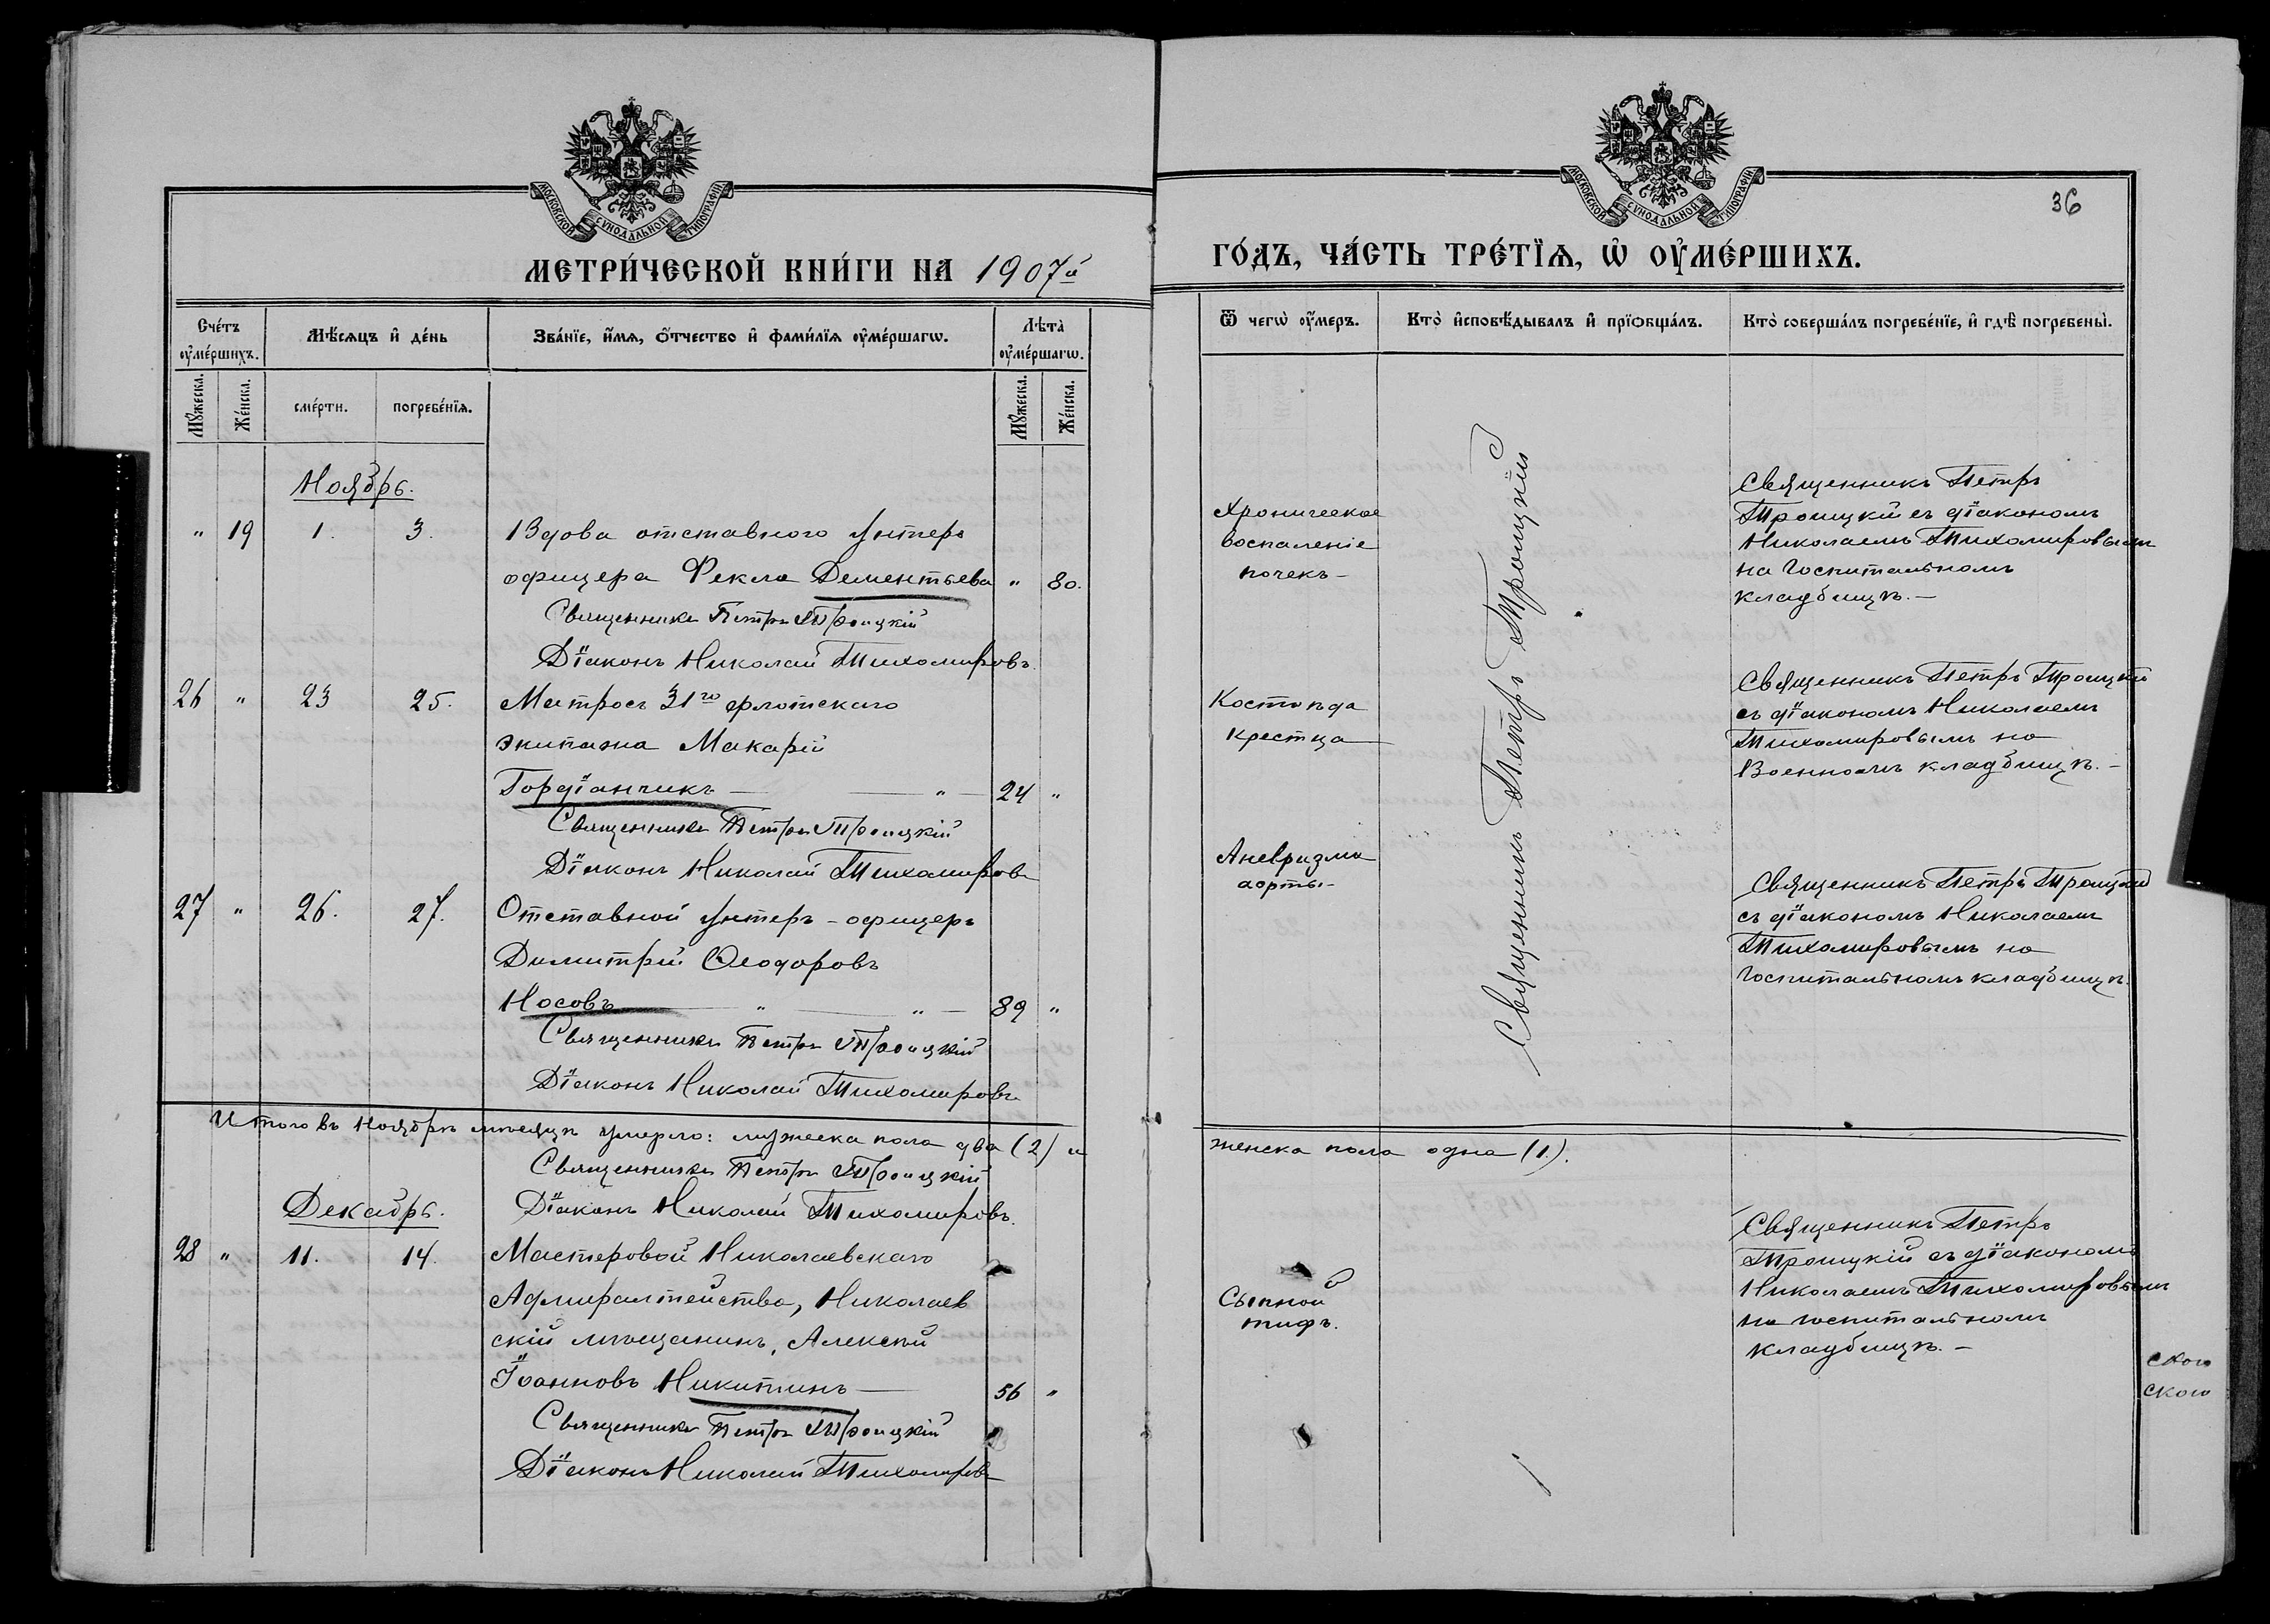 МОСКОВСКОЙ СУНОДАЛЬНОЙ ТИПОГРАФІИ
МЕТРИ́ЧЕСКОЙ КНИ́ГИ НА 1907й
Сче́тъ ᲂу҆ме́ршихъ.
Мѣ́сѧцъ и҆ де́нь
Зва́нїе, и҆́мѧ, ѻ҆́тчество и҆ фами́лїѧ ᲂу҆ме́ршагѡ.
Лѣ́та ᲂу҆ме́ршагѡ.
Мꙋ́жеска.
Же́нска.
сме́рти.
погребе́нїѧ.
Мꙋ́жеска.
Же́нска.
Ноябрь.
" 19 1. 3. Вдова отставного унтеръ
офицера Фекла Дементьева " 80.
Священникъ Петръ Троицкій
Діаконъ Николай Тихомировъ.
26 " 23 25. Матросъ 31го флотскаго
экипажа Макарій
Гордіанчикъ — " — 24 "
Священникъ Петръ Троицкій
Діаконъ Николай Тихомировъ
27 " 26. 27. Отставной унтеръ-офицеръ
Димитрій Ѳеодоровъ
Носовъ — " — " — 89 "
Священникъ Петръ Троицкій
Діаконъ Николай Тихомировъ
Итого въ Ноябрѣ мѣсяцѣ умерло: мужеска пола два (2) и
Священникъ Петръ Троицкій
Діаконъ Николай Тихомировъ.
Декабрь.
28 " 11. 14. Мастеровой Николаевскаго
Адмиралтейства, Николаев
скій мѣщанинъ, Алексѣй
Іоанновъ Никитинъ — 56 "
Священникъ Петръ Троицкій
Діаконъ Николай Тихомировъ
МОСКОВСКОЙ СУНОДАЛЬНОЙ ТИПОГРАФІИ
36
ГО́ДЪ, ЧА́СТЬ ТРЕ́ТЇѦ, Ѡ҆ ОУ҆МЕ́РШИХЪ.
Ѿ чегѡ̀ ᲂу҆́меръ.
Кто̀ и҆сповѣ́дывалъ и҆ прїѡбща́лъ.
Кто̀ соверша́лъ погребе́нїе, и҆ гдѣ̀ погребены̀.
Хроническое
воспаленіе
почекъ —
Священникъ Петръ
Троицкій съ діакономъ
Николаемъ Тихомировымъ
на Госпитальномъ
кладбищѣ. —
Костоѣда
крестца
Священникъ Петръ Троицкій
съ діакономъ Николаемъ
Тихомировымъ на
Военномъ кладбищѣ. —
Аневризма
аорты —
Священникъ Петръ Троицкій
съ діакономъ Николаемъ
Тихомировымъ на
Госпитальномъ кладбищѣ.
Священникъ Петръ Троицкій
женска пола одна (1).
Сыпной
тифъ.
Священникъ Петръ
Троицкій съ діакономъ
Николаемъ Тихомировымъ
на госпитальномъ
кладбищѣ. —
ского
ского